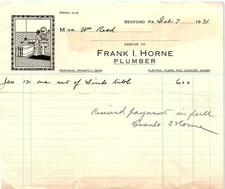 BEDFORD PA. Feb 7 1931
Miss Wm Reed
DEBTOR TO
FRANK I. HORNE
PLUMBER
REPAIRING PROMPTLY DONE
ELECTRIC PUMPS FOR COUNTRY HOMES
Jan 12 one set of Sink bibb 6 00
Received payment in full
Frank I Horne